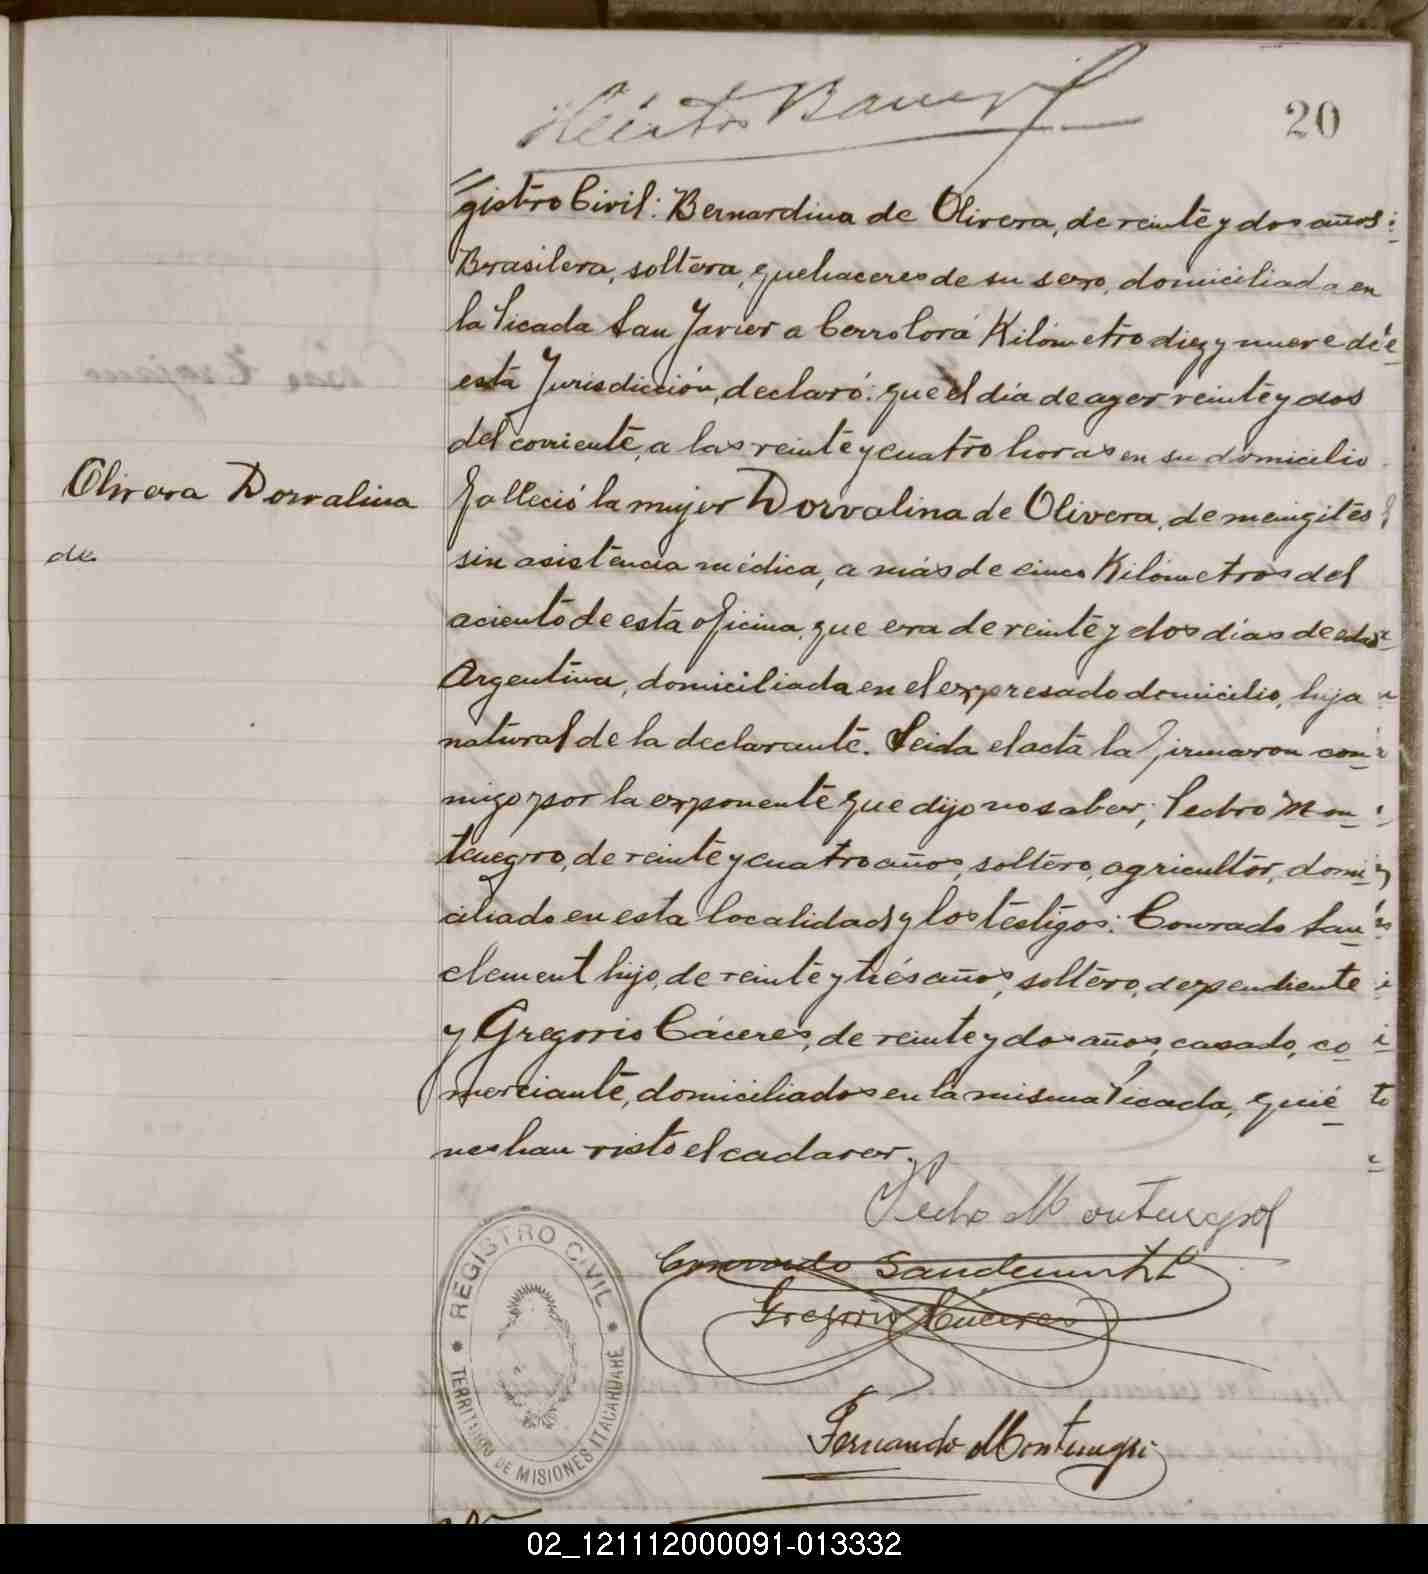 20
gistro Civil: Bernardina de Olivera, de veinte y dos años
Brasilera, soltera, quehaceres de su sexo, domiciliada en
la Picada San Javier a Cerro Corá Kilómetro diez y nueve de
esta Jurisdicción, declaró: que el día de ayer veinte y dos
del corriente, a las veinte y cuatro horas en su domicilio
Olivera Dorvalina
de
falleció la mujer Dorvalina de Olivera, de meingites
sin asistencia médica, a más de cinco Kilómetros del
aciento de esta oficina, que era de veinte y dos días de edad
Argentina, domiciliada en el expresado domicilio, hija
natural de la declarante. Leida el acta la firmaron con
migo por la exponente que dijo no saber; Pedro Mon
tenegro, de veinte y cuatro años, soltero, agricultor, domi
ciliado en esta localidad y los testigos: Conrado San
clement hijo, de veinte y trés años, soltero, dependiente
y Gregorio Cáceres, de veinte y dos años, casado, co
merciante, domiciliados en la misma Picada, quié
nes han visto el cadaver.
Pedro Montenegro
Conrado Sanclement
Gregorio Cáceres
REGISTRO CIVIL
TERRITORIO DE MISIONES ITACARUARÉ
Fernando Montenegro
02_121112000091-013332